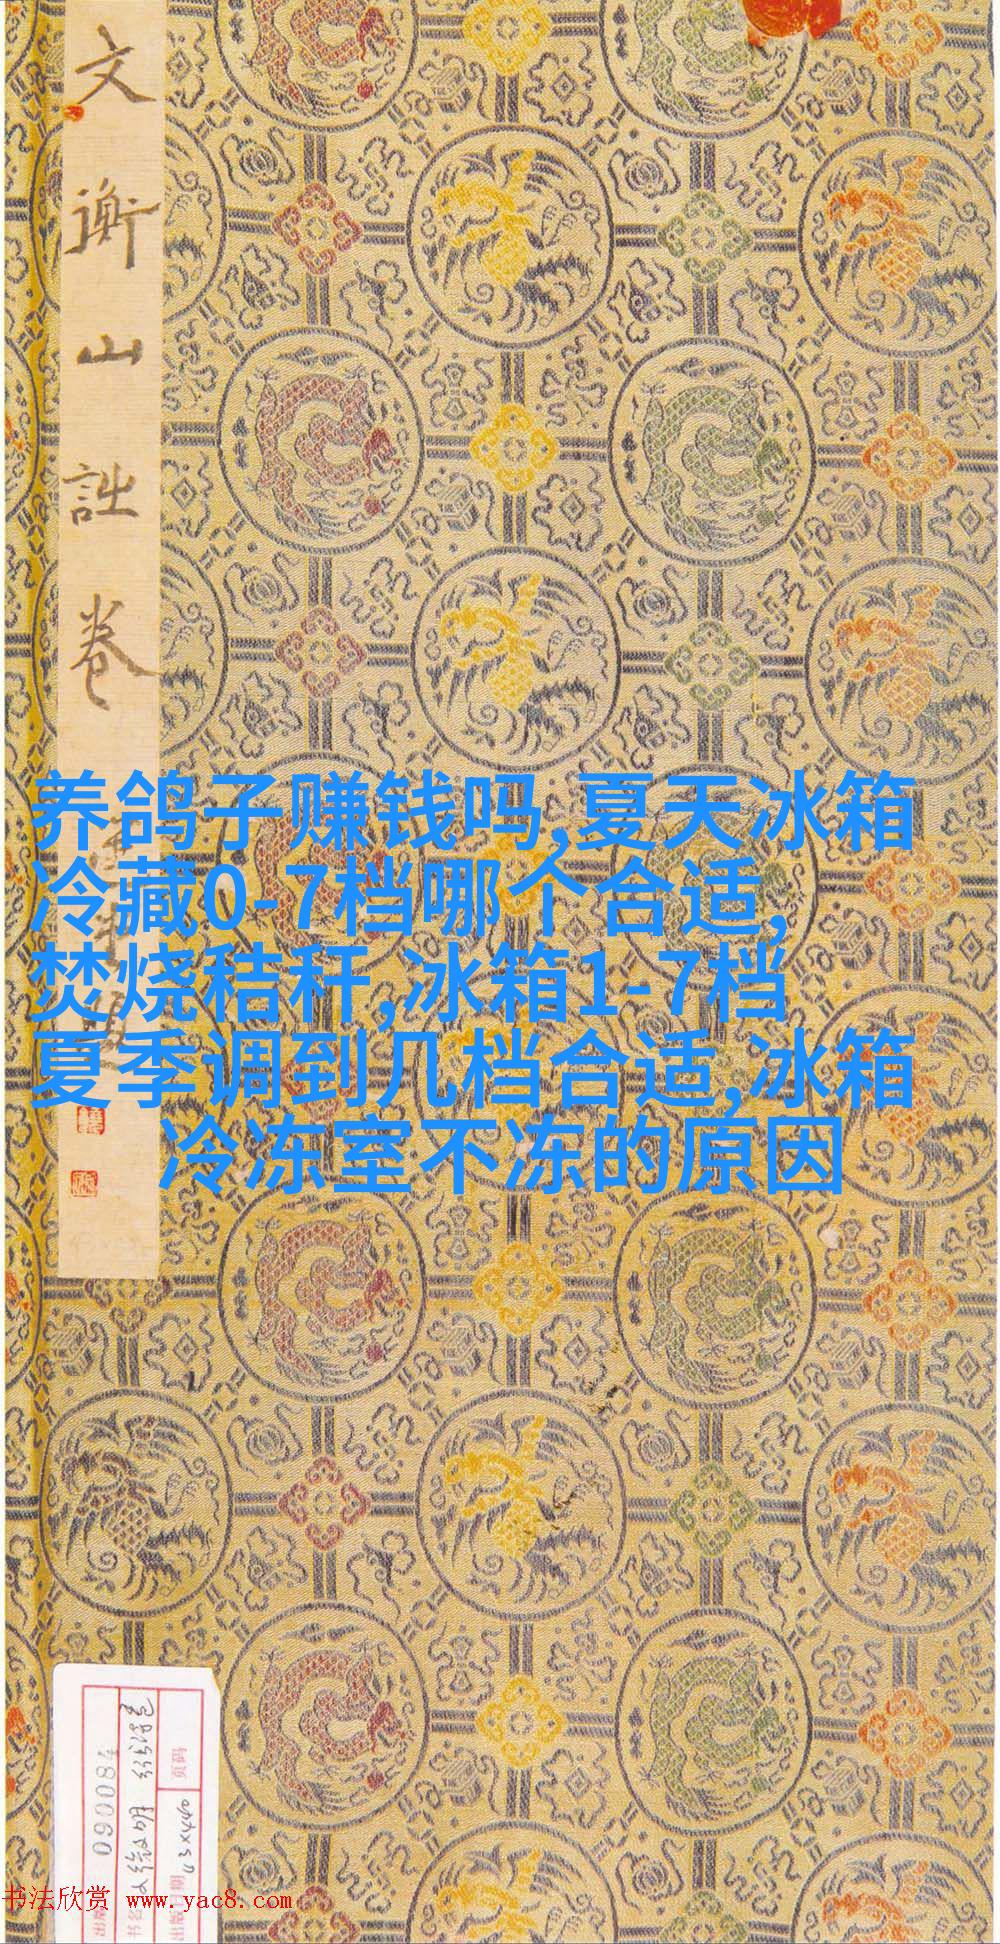 文衡山詩卷
养鸽子赚钱吗,夏天冰箱
冷藏0-7档哪个合适,
焚烧秸秆,冰箱1-7档
夏季调到几档合适,冰箱
冷冻室不冻的原因
090084
页码
43×440
书法欣赏 www.yac8.com